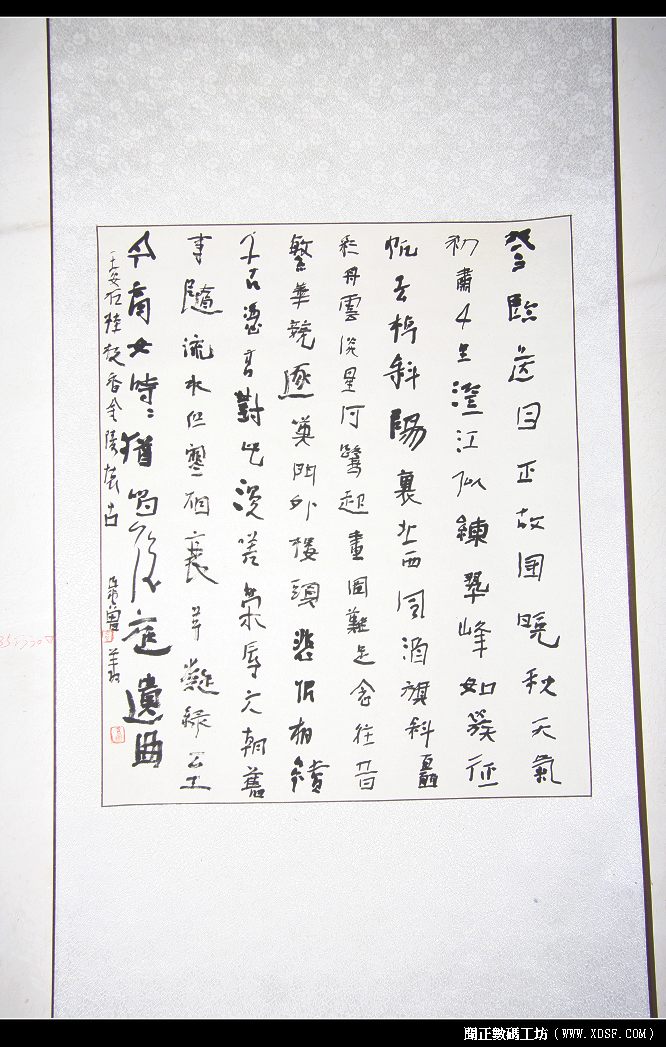 登臨送目正故國晚秋天氣
初肅千里澄江似練翠峰如簇征
帆去棹斜陽裏北西風酒旗斜矗
彩舟雲淡星河鷺起畫圖難足念往昔
繁華競逐嘆門外樓頭悲恨相續
千古憑高對此漫嗟榮辱六朝舊
事隨流水但寒烟衰草凝綠至
今商女時〻猶唱後庭遺曲
王安石桂枝香金陵懷古
聞正數碼工坊（WWW.XDSF.COM）